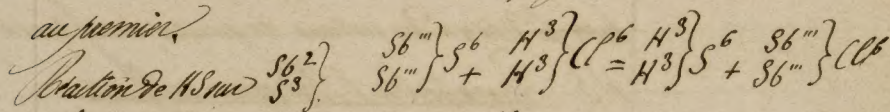 au premier.
Réaction de HS sur Sb²/S³} Sb'''/Sb'''}S⁶ + H³/H³}Cl⁶ = H³/H³}S⁶ + Sb'''/Sb'''}Cl⁶